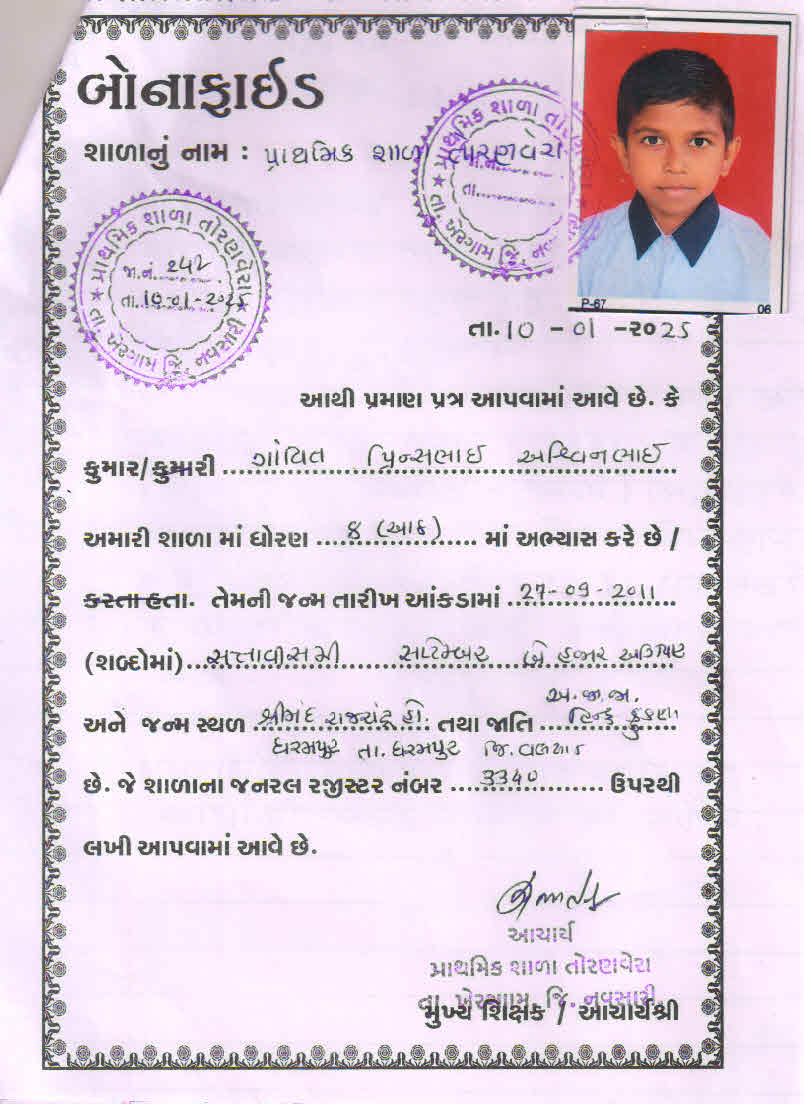 બોનાફાઈડ
શાળાનું નામ : પ્રાથમિક શાળા તોરણવેરા
પ્રાથમિક શાળા તોરણવેરા
જા.નં. 242
તા. 10-01-2025
જિ. નવસારી
પ્રાથમિક શાળા
જા.નં.
તા.
P-67
06
તા. 10 - 01 - ૨૦25
આથી પ્રમાણ પત્ર આપવામાં આવે છે. કે
કુમાર/કુમારી ગાંવિત પ્રિન્સભાઈ અશ્વિનભાઈ
અમારી શાળા માં ધોરણ 8 (આઠ) માં અભ્યાસ કરે છે /
કરતા હતા. તેમની જન્મ તારીખ આંકડામાં 27-09-2011
(શબ્દોમાં) સત્તાવીસમી સપ્ટેમ્બર બે હજાર અગિયાર
અ.જ.જા.
અને જન્મ સ્થળ શ્રીમદ રાજચંદ્ર હો. તથા જાતિ હિન્દુ કુકણા
ધરમપુર તા. ધરમપુર જિ. વલસાડ
છે. જે શાળાના જનરલ રજીસ્ટર નંબર 3340 ઉપરથી
લખી આપવામાં આવે છે.
આચાર્ય
પ્રાથમિક શાળા તોરણવેરા
તા. ખેરગામ, જિ. નવસારી.
મુખ્ય શિક્ષક / આચાર્યશ્રી